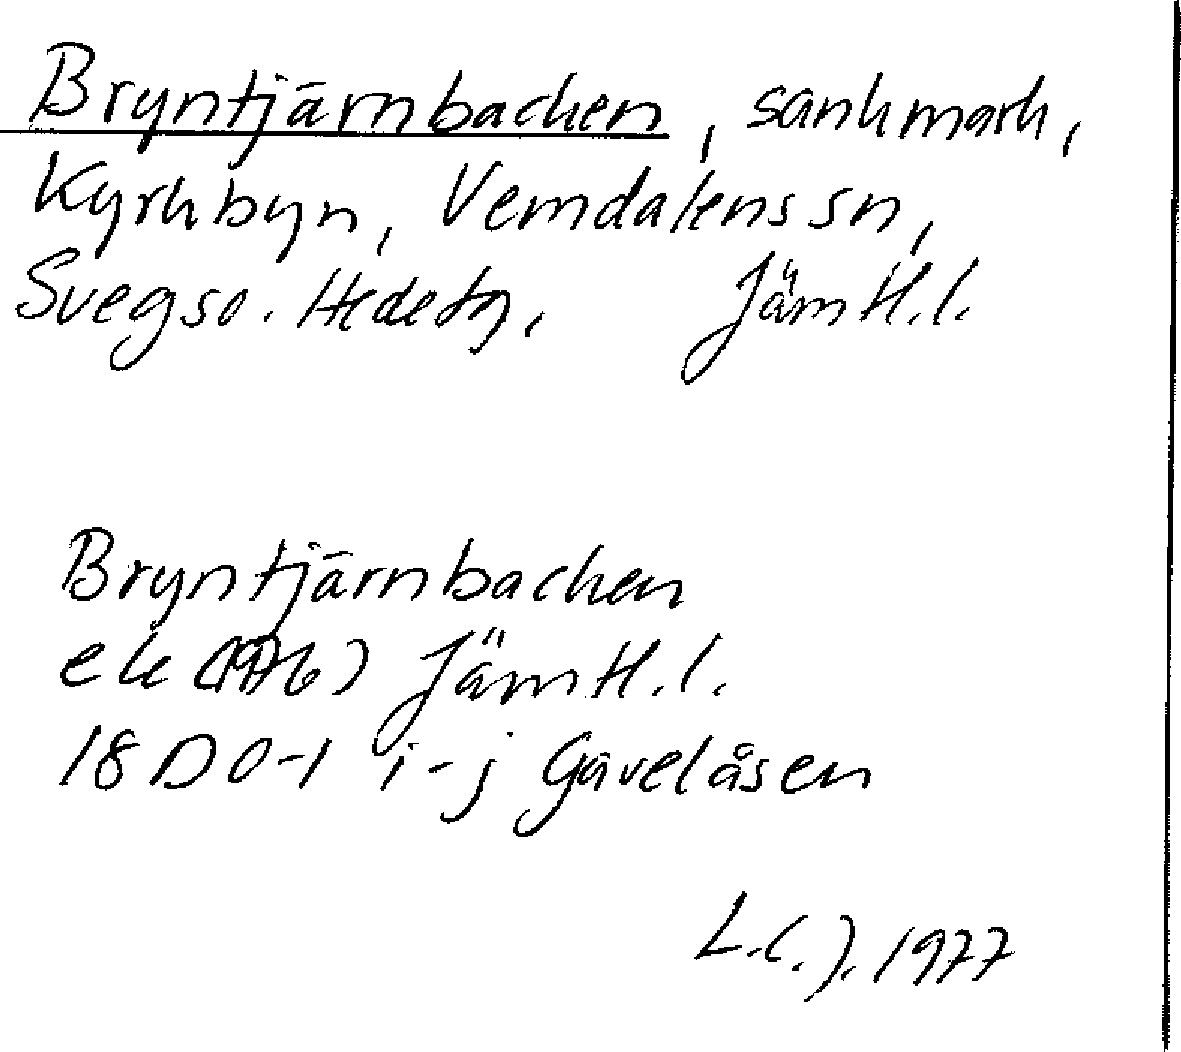 Bryntjärnbacken, sankmark,
Kyrkbyn, Vemdalens sn,
Svegs o. Hede tg, Jämtl.l.
Bryntjärnbacken
ek (1976) Jämtl.l.
18 D 0-1 i-j Gåvelåsen
L.C.J. 1977